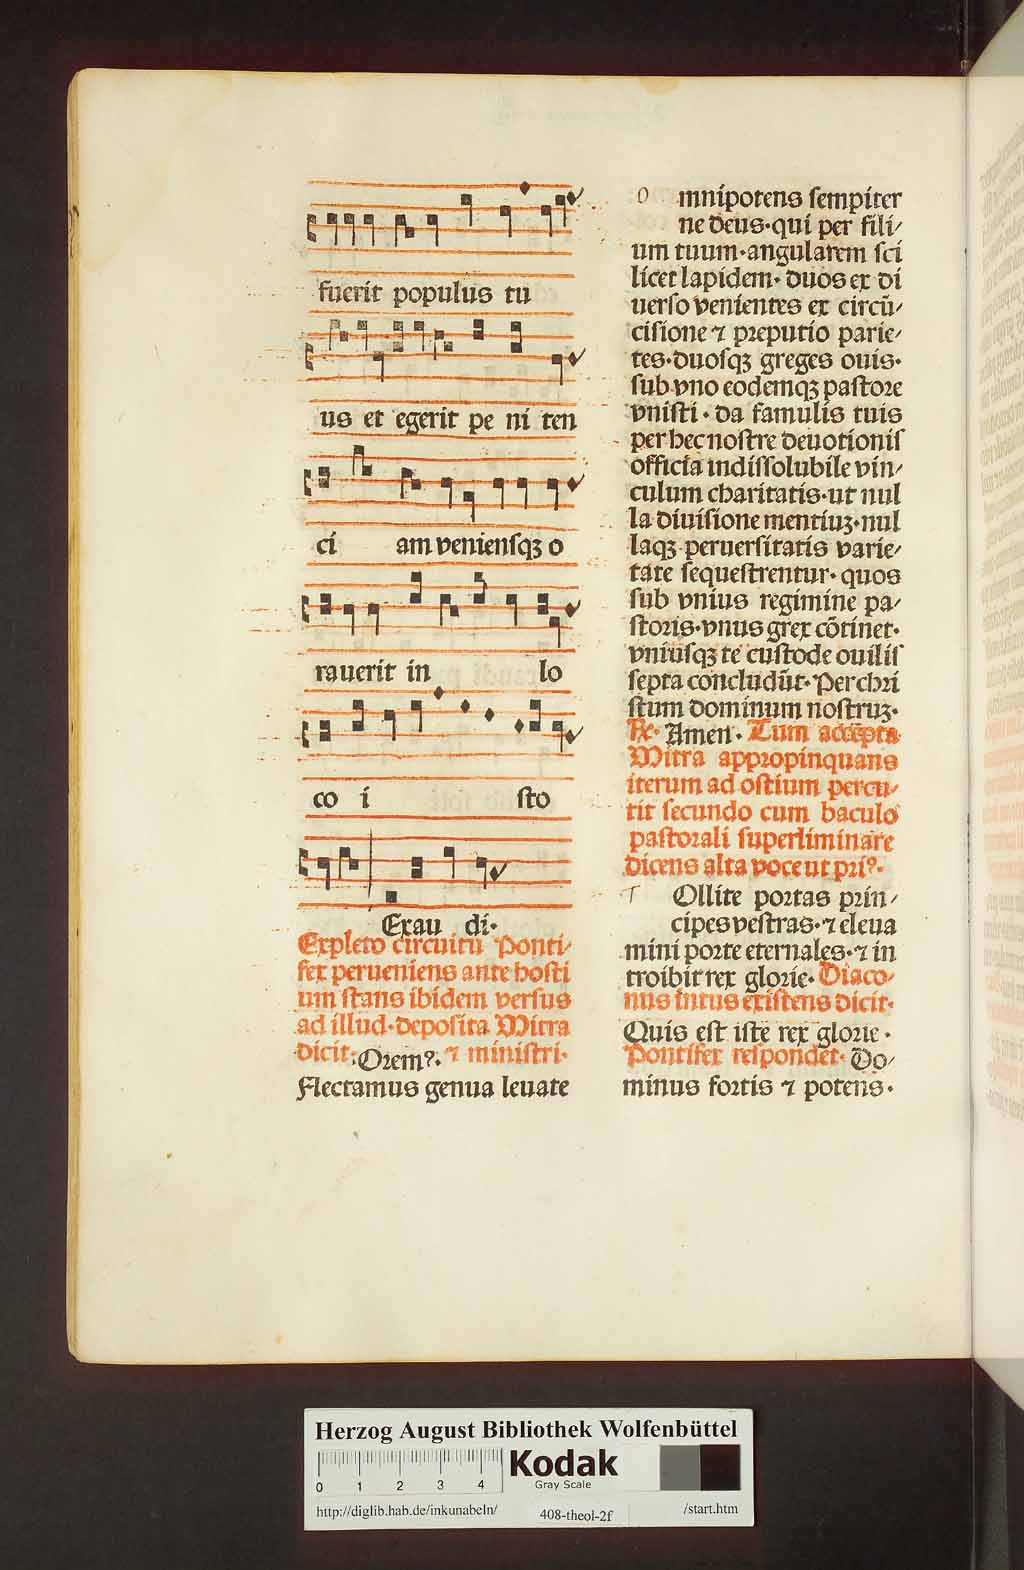 fuerit populus tu
us et egerit pe ni ten
ci am veniensqꝫ o
rauerit in lo
co i sto
Exau di·
Expleto circuitu Ponti⸗
fex perueniens ante hosti
um stans ibidem versus
ad illud·deposita Mitra
dicit·Orem⁹·⁊ ministri·
Flectamus genua leuate
O mnipotens sempiter
ne deus·qui per fili⸗
um tuum·angularem sci
licet lapidem·duos ex di
uerso venientes ex circū⸗
cisione ⁊ preputio parie⸗
tes·duosqꝫ greges ouis·
sub vno eodemqꝫ pastore
vnisti·da famulis tuis
per hec nostre deuotionis
officia indissolubile vin⸗
culum charitatis·ut nul
la diuisione mentiuꝫ·nul
laqꝫ peruersitatis varie⸗
tate sequestrentur·quos
sub vnius regimine pa⸗
storis·vnus grex cōtinet·
vniusqꝫ te custode ouilis
septa concludūt·Per chri
stum dominum nostruꝫ·
℟·Amen·Tum accepta
Mitra appropinquans
iterum ad ostium percu⸗
tit secundo cum baculo
pastorali superliminare
dicens alta voce ut pri⁹·
T Ollite portas prin⸗
cipes vestras·⁊ eleua
mini porte eternales·⁊ in
troibit rex glorie·Diaco⸗
nus intus existens dicit·
Quis est iste rex glorie·
Pontifex respondet·Do⸗
minus fortis ⁊ potens·
Herzog August Bibliothek Wolfenbüttel
0 1 2 3 4
Kodak
Gray Scale
http://diglib.hab.de/inkunabeln/ 408-theol-2f /start.htm